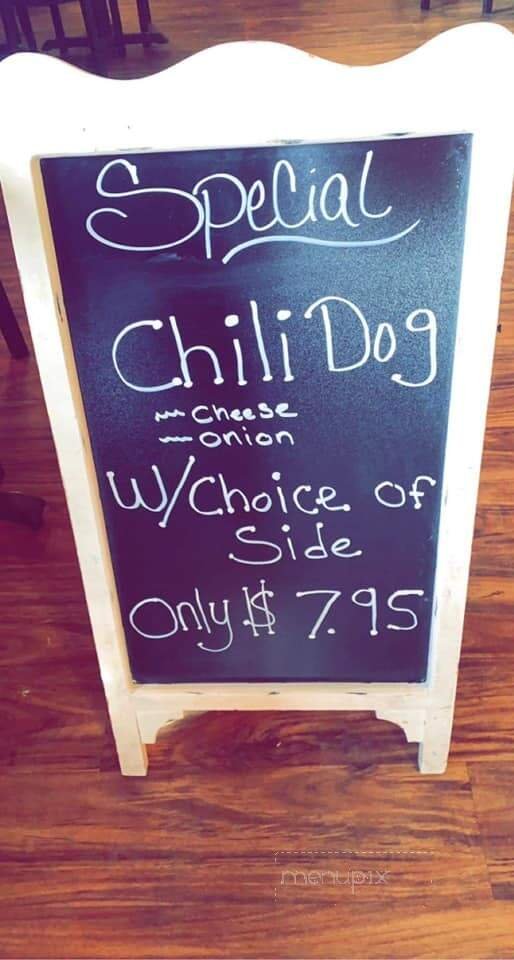 Special
Chili Dog
~ Cheese
~ onion
W/Choice of
Side
Only $ 7.95
menupix